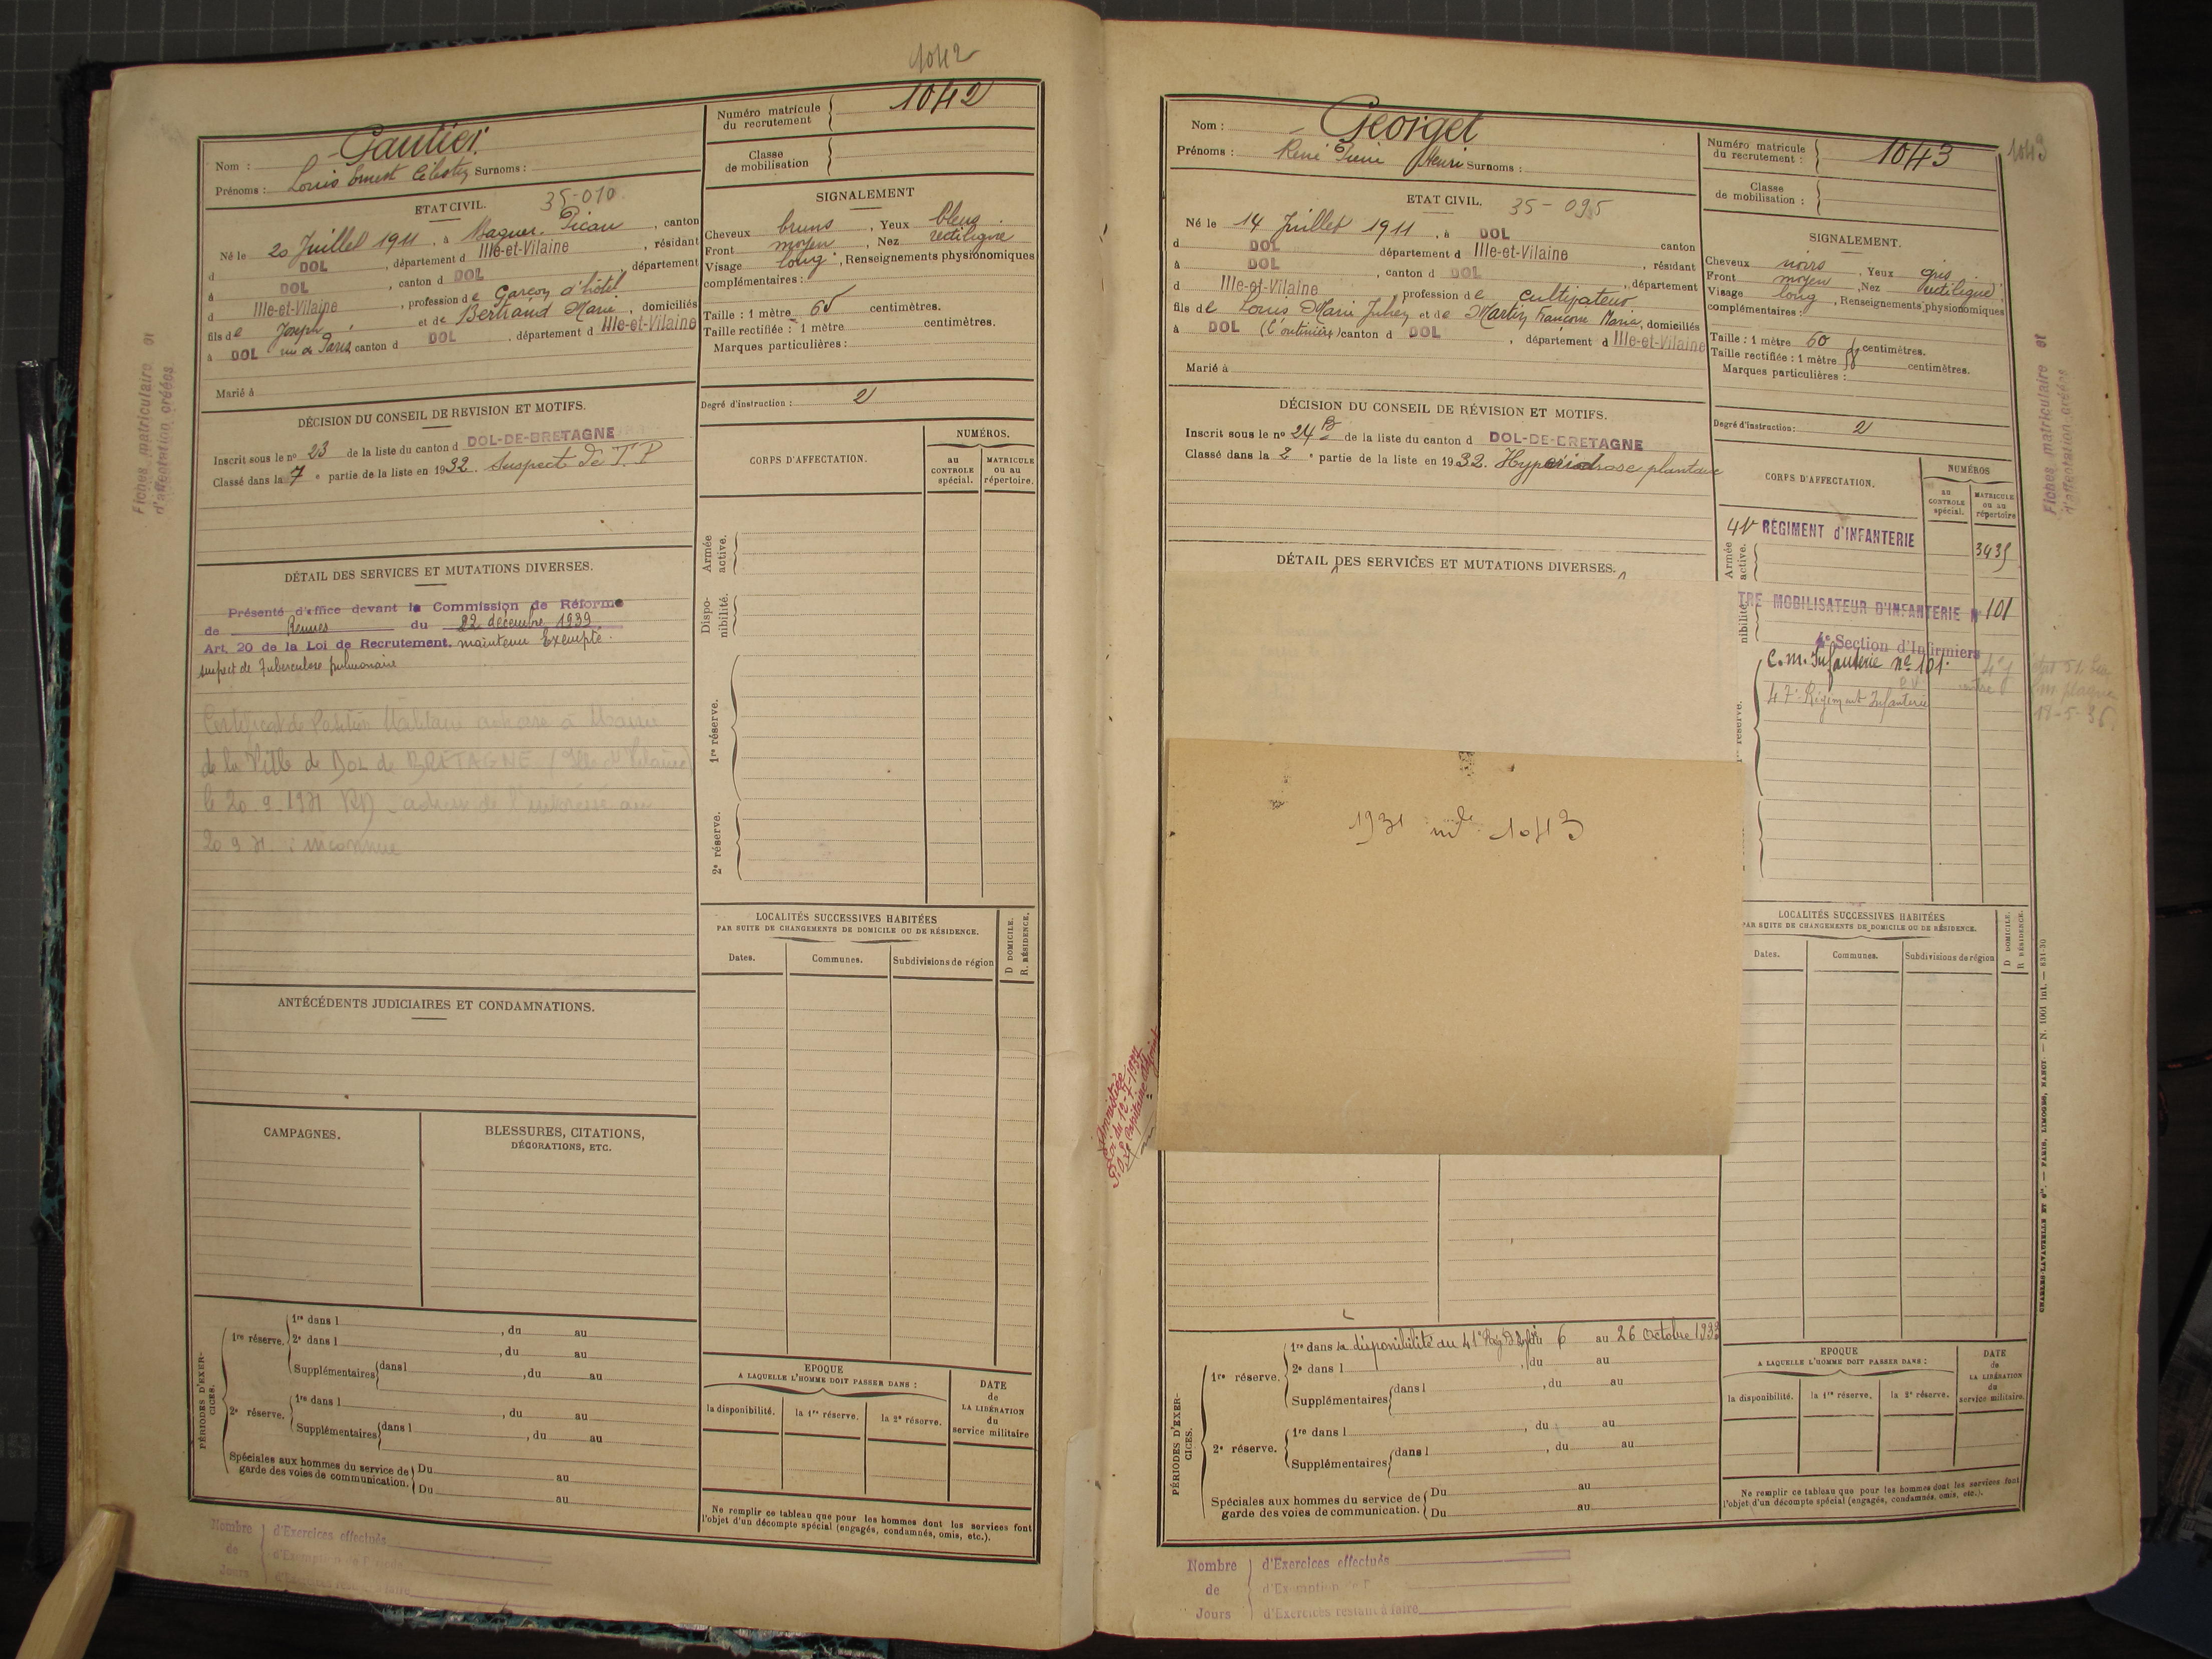 1042
Nom : Gautier
Prénoms : Louis Ernest Célestin Surnoms :
Numéro matricule du recrutement 1042
Classe de mobilisation
ETAT CIVIL. 35-010
Né le 20 Juillet 1911, à Baguer-Pican, canton
d DOL, département d Ille-et-Vilaine, résidant
à DOL, canton d DOL, département
d Ille-et-Vilaine, profession de Garçon d'hôtel
fils de Joseph et de Bertrand Marie, domiciliés
à DOL rue de Paris canton d DOL, département d Ille-et-Vilaine
Marié à
SIGNALEMENT
Cheveux bruns, Yeux bleus
Front moyen, Nez rectiligne
Visage long, Renseignements physionomiques
complémentaires :
Taille : 1 mètre 65 centimètres.
Taille rectifiée : 1 mètre centimètres.
Marques particulières :
Degré d'instruction : 2
DÉCISION DU CONSEIL DE REVISION ET MOTIFS.
Inscrit sous le nº 23 de la liste du canton d DOL-DE-BRETAGNE
Classé dans la 7e partie de la liste en 1932. Suspect de T.P
CORPS D'AFFECTATION.
NUMÉROS.
au CONTROLE spécial.
MATRICULE ou au répertoire.
Armée active.
Disponibilité.
1re réserve.
2e réserve.
DÉTAIL DES SERVICES ET MUTATIONS DIVERSES.
Présenté d'office devant la Commission de Réforme
de Rennes du 22 décembre 1939
Art. 20 de la Loi de Recrutement. maintenu Exempté.
suspect de Tuberculose pulmonaire
Certificat de Position Militaire adressé à Mairie
de la Ville de DOL de BRETAGNE (Ille et Vilaine)
le 20.9.1971 adresse de l'intéressé au
20 9 71 : inconnue
ANTÉCÉDENTS JUDICIAIRES ET CONDAMNATIONS.
LOCALITÉS SUCCESSIVES HABITÉES
PAR SUITE DE CHANGEMENTS DE DOMICILE OU DE RÉSIDENCE.
Dates. Communes. Subdivisions de région
D DOMICILE.
R. RÉSIDENCE.
CAMPAGNES.
BLESSURES, CITATIONS,
DÉCORATIONS, ETC.
PÉRIODES D'EXERCICES.
1re réserve. 1re dans l , du au
2e dans l , du au
Supplémentaires dans l , du au
2e réserve. 1re dans l , du au
Supplémentaires dans l , du au
Spéciales aux hommes du service de garde des voies de communication. Du au
Du au
EPOQUE
A LAQUELLE L'HOMME DOIT PASSER DANS :
la disponibilité. la 1re réserve. la 2e réserve.
DATE de LA LIBÉRATION du service militaire
Ne remplir ce tableau que pour les hommes dont les services font
l'objet d'un décompte spécial (engagés, condamnés, omis, etc.).
Nombre de Jours
d'Exercices effectués
d'Exemption de
d'Exercices restant à faire
Fiches matriculaire et
d'affectation créées
1043
Nom : Georget
Prénoms : René Pierre Henri Surnoms :
Numéro matricule du recrutement : 1043
Classe de mobilisation :
ETAT CIVIL. 35-095
Né le 14 Juillet 1911, à DOL
d DOL département d Ille-et-Vilaine canton
à DOL, canton d DOL, résidant
d Ille-et-Vilaine profession de cultivateur, département
fils de Louis Marie Julien et de Martin Françoise Maria, domiciliés
à DOL canton d DOL, département d Ille-et-Vilaine
Marié à
SIGNALEMENT.
Cheveux noirs, Yeux gris
Front moyen, Nez rectiligne
Visage long, Renseignements physionomiques
complémentaires :
Taille : 1 mètre 60 centimètres.
Taille rectifiée : 1 mètre centimètres.
Marques particulières :
Degré d'instruction : 2
DÉCISION DU CONSEIL DE RÉVISION ET MOTIFS.
Inscrit sous le nº 24 B de la liste du canton d DOL-DE-BRETAGNE
Classé dans la 2e partie de la liste en 1932. Hyperidrose plantaire
CORPS D'AFFECTATION.
NUMÉROS
au CONTROLE spécial.
MATRICULE ou au répertoire
Armée active.
RÉGIMENT d'INFANTERIE 3435
TRE MOBILISATEUR D'INFANTERIE N 101
4e Section d'Infirmiers
C.m. Infanterie nº 101.
47e Régiment Infanterie
18-5-36
DÉTAIL DES SERVICES ET MUTATIONS DIVERSES.
1931 mle 1043
Amnistiée
Loi du 12-7-1937
P.O. Le Capitaine Adjoint
LOCALITÉS SUCCESSIVES HABITÉES
PAR SUITE DE CHANGEMENTS DE DOMICILE OU DE RÉSIDENCE.
Dates. Communes. Subdivisions de région
D DOMICILE.
R RÉSIDENCE.
PÉRIODES D'EXERCICES.
1re réserve. 1re dans la disponibilité au 41e Rég. D'Inf. du 6 au 26 Octobre 1933
2e dans l , du au
Supplémentaires dans l , du au
2e réserve. 1re dans l , du au
Supplémentaires dans l , du au
Spéciales aux hommes du service de garde des voies de communication. Du au
Du au
EPOQUE
A LAQUELLE L'HOMME DOIT PASSER DANS :
la disponibilité. la 1re réserve. la 2e réserve.
DATE de LA LIBÉRATION du service militaire.
Ne remplir ce tableau que pour les hommes dont les services font
l'objet d'un décompte spécial (engagés, condamnés, omis, etc.).
Nombre de Jours
d'Exercices effectués
d'Exemption de
d'Exercices restant à faire
Fiches matriculaire et
d'affectation créées
CHARLES-LAVAUZELLE ET Cie. — PARIS, LIMOGES, NANCY. — N. 1001 int. — 831-30